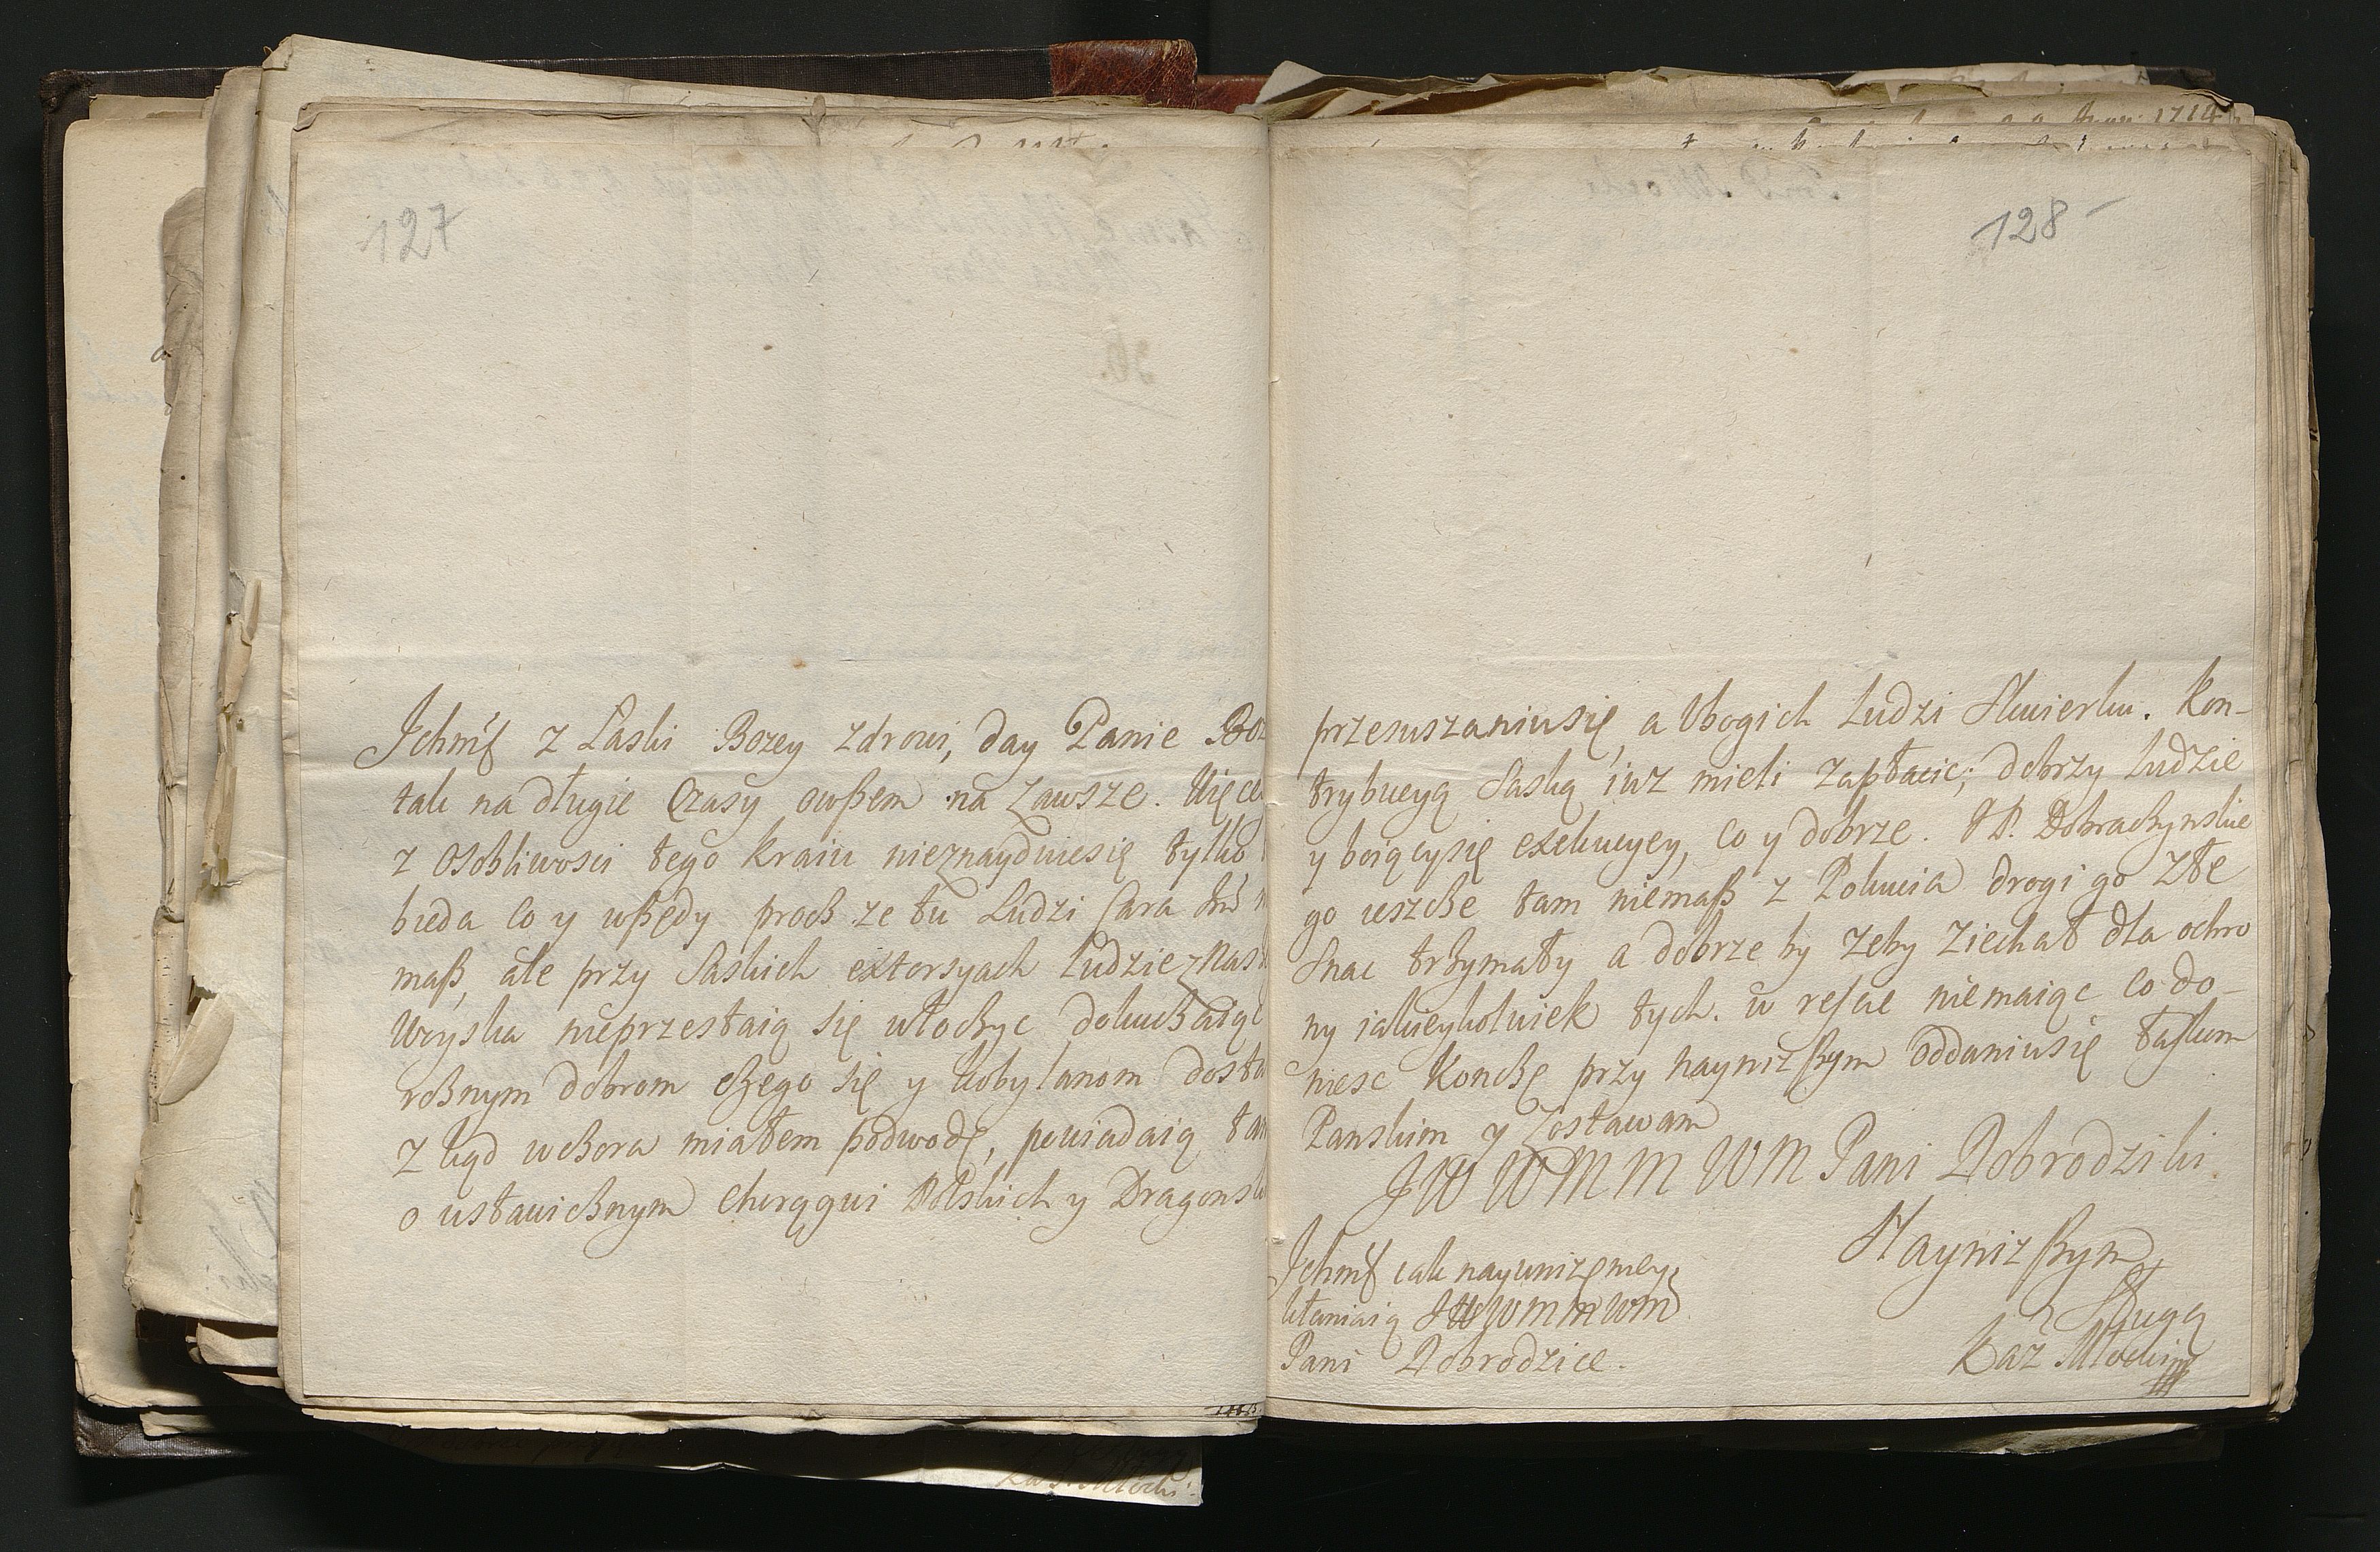 127
Jchmć z Łaski Bozey zdrowi, day Panie Boz
tak na długie czasy owszem na zawsze. Więcey
z osobliwosci tego kraiu nieznayduiesię tylko
bieda co y wszędy procz ze tu Ludzi Cara Jmć
masz, ale przy Saskich extorsyach Ludzie z nas
Woyska nieprzestaią się włoczyc dokuczaiąc
roznym dobrom czego się y kobylanom dosta
z kąd wczora miałem podwodę, powiadaią tam
o ustawicznym Chorągwi Polskich y Dragonsk
128
przesuszaniusię, a Ubogich Ludzi Skwierku. Kon-
trybucyą Saską iuz mieli zapłacic; dobrzy Ludzie
y boiącysię exekucyey, co y dobrze. JP. Dobraczynskie
go ieszcze tam niemasz z Pokucia drogi go złe
snac trzymały a dobrze by zeby ziechał dla ochro
ny iakieykolwiek tych. w resce niemaiąc co do-
niesc Konczę przy nayniższym oddaniusię łaskom
Panskim y zostawam
JW WM M WM Pani Dobrodziki
Jchmć całe nayunizeniey
kłaniaią JWWMMWM
Pani Dobrodzice.
Nayniższym
Sługą
Kaz Młocki
1714